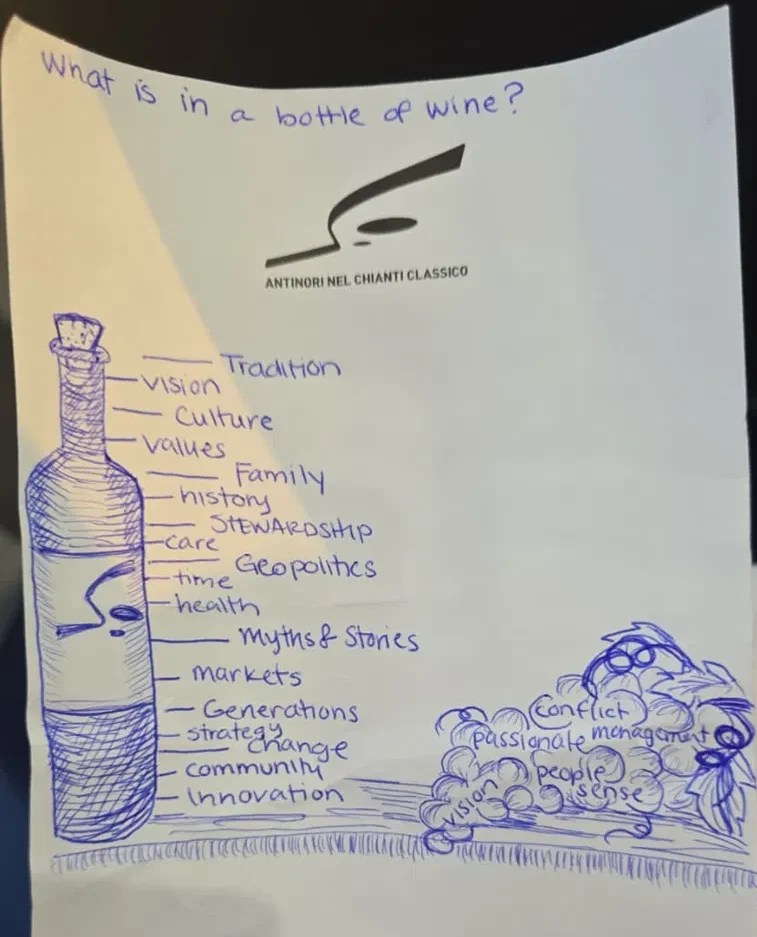 What is in a bottle of wine?
ANTINORI NEL CHIANTI CLASSICO
Tradition
vision
Culture
values
Family
history
STEWARDSHIP
care
Geopolitics
time
health
Myths & Stories
markets
Generations
strategy
change
community
Innovation
Conflict
passionate management
people
sense
vision